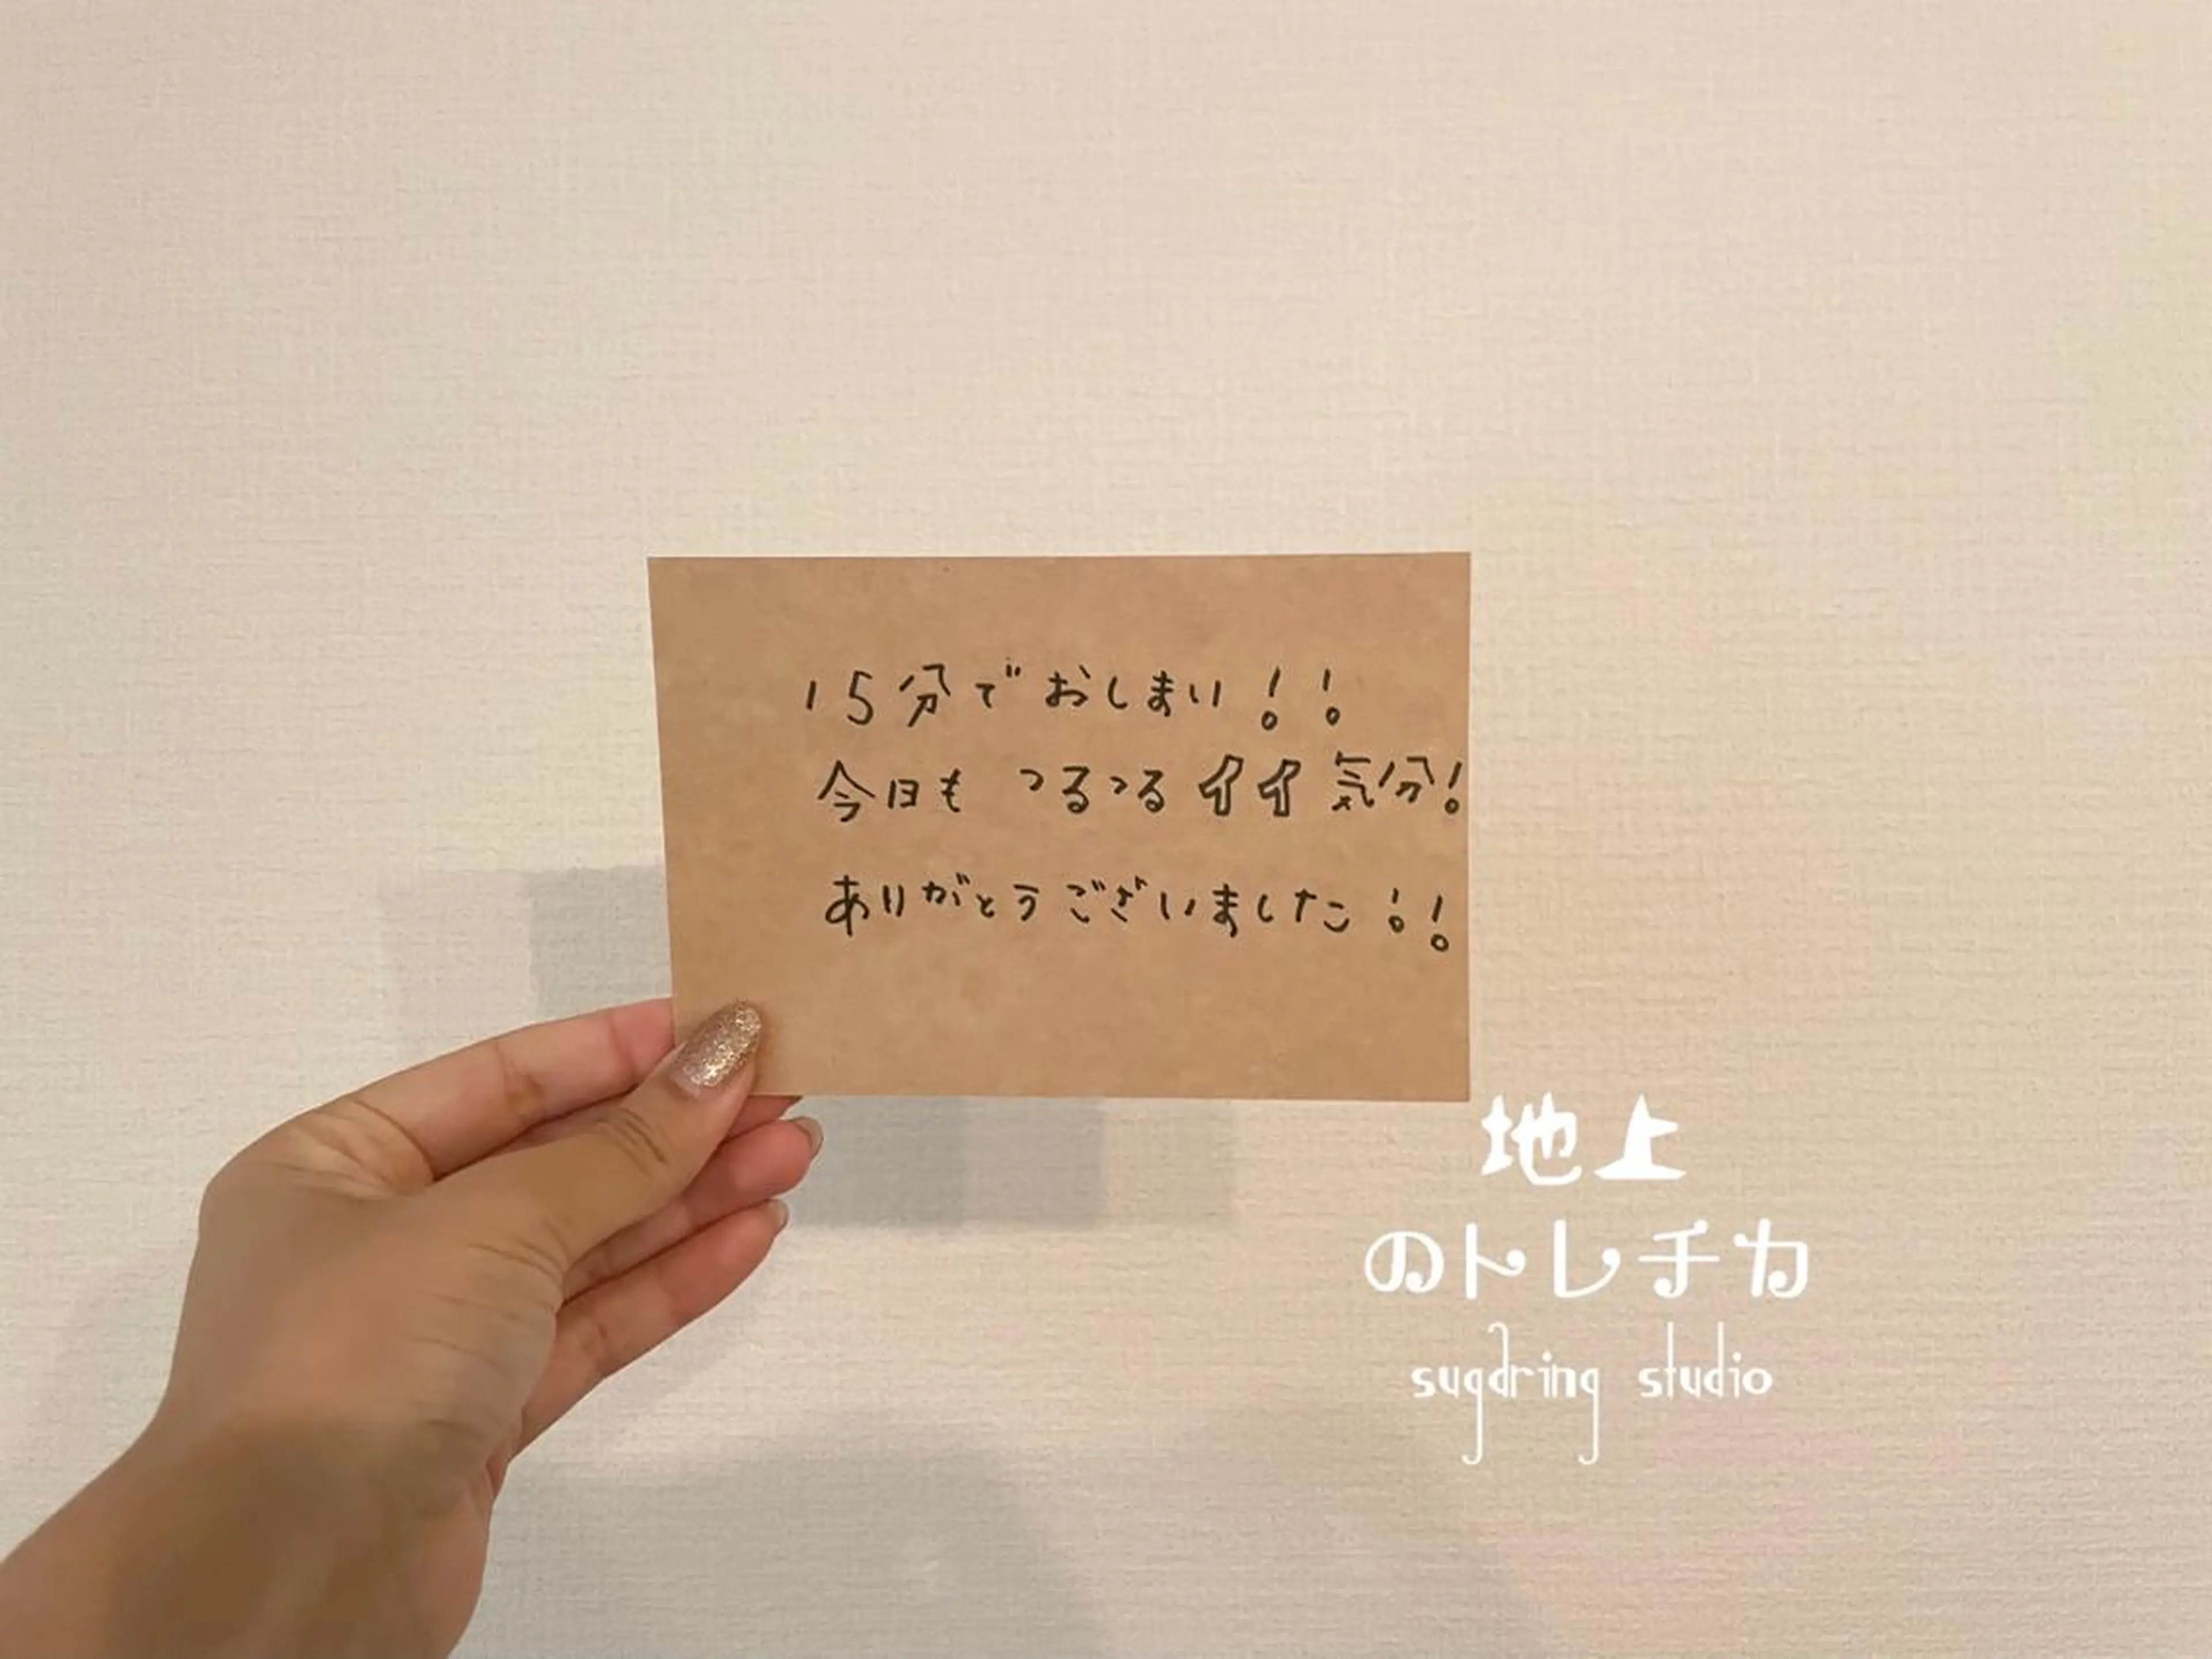 15分でおしまい!!
今日も つるつるイイ気分!
ありがとうございました!!
地上
のトレチカ
sugdring studio